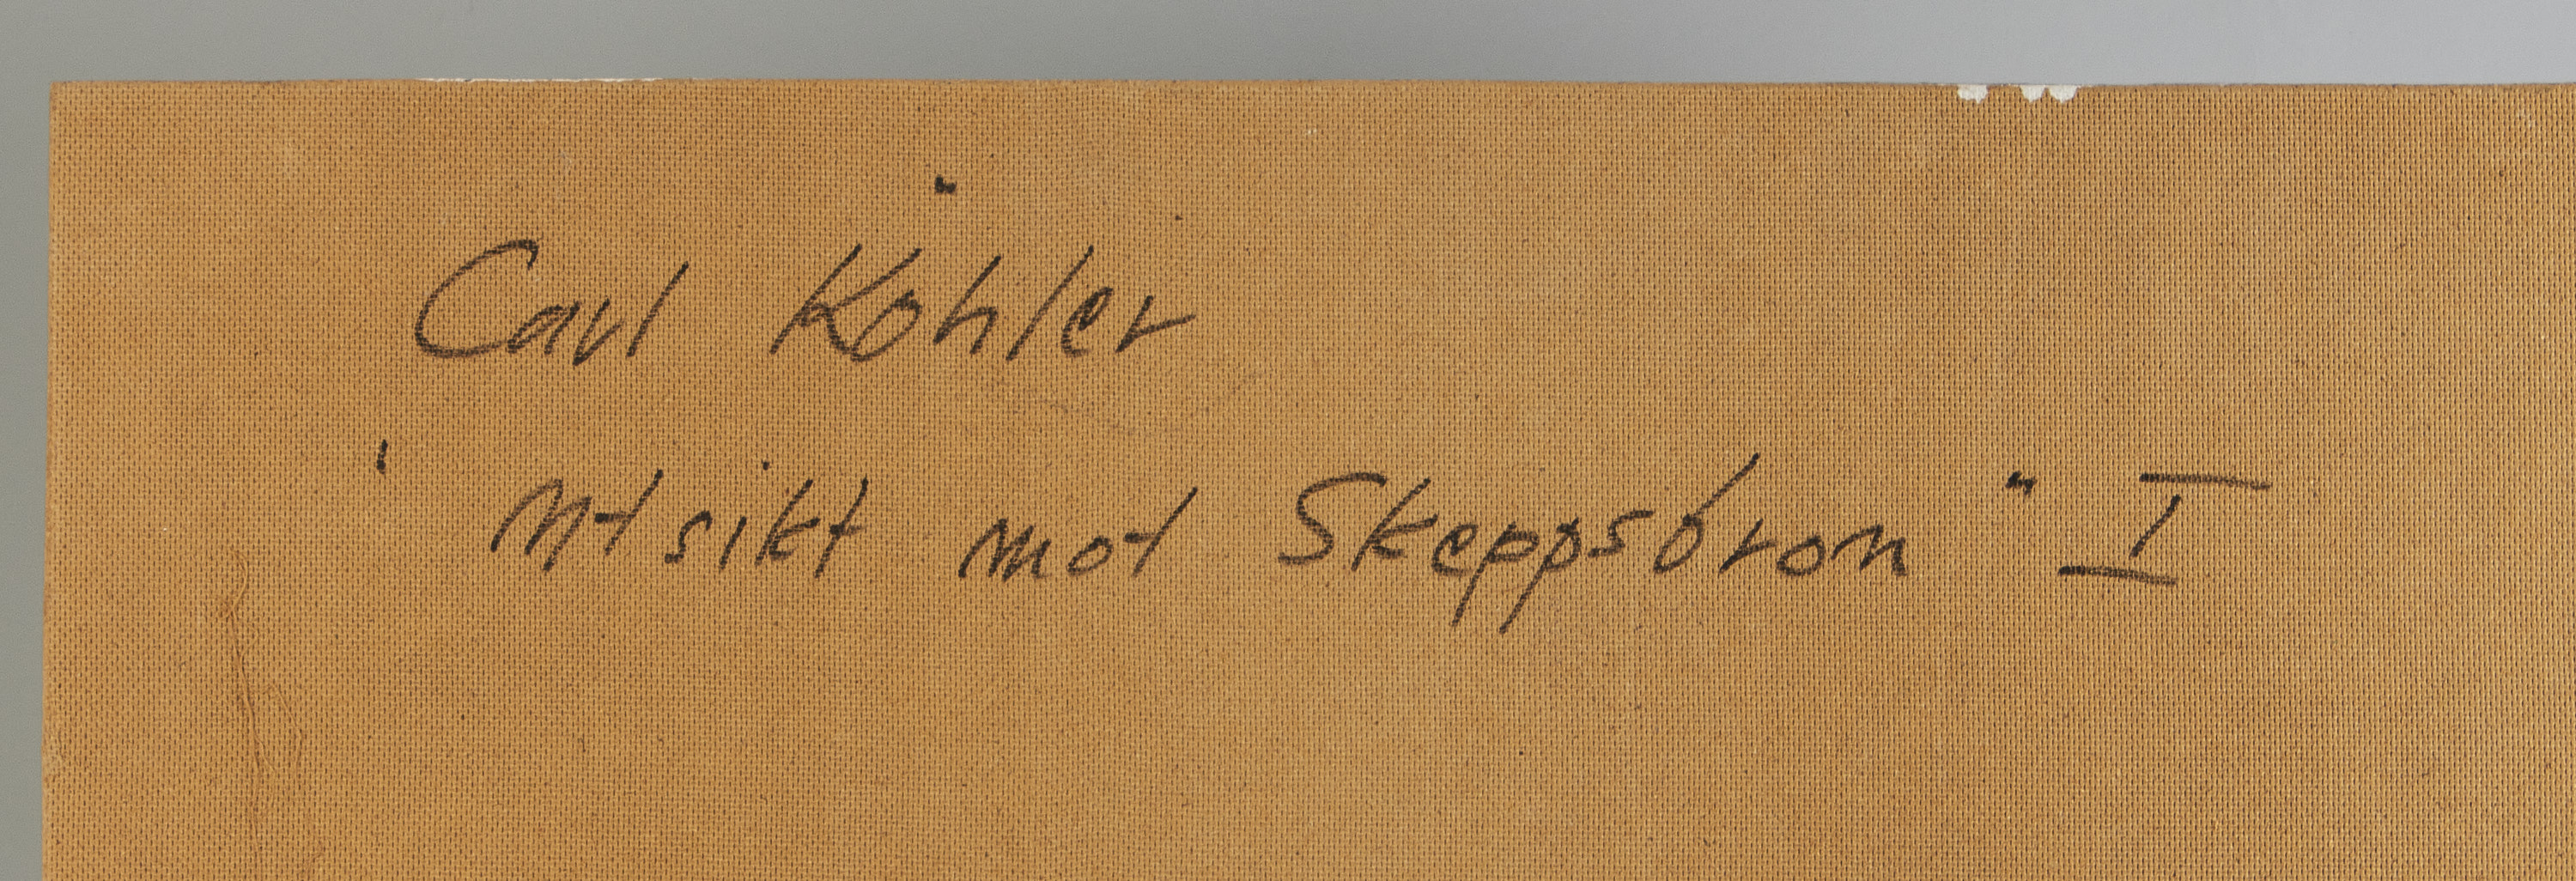 Carl Köhler
"Utsikt mot Skeppsbron" I